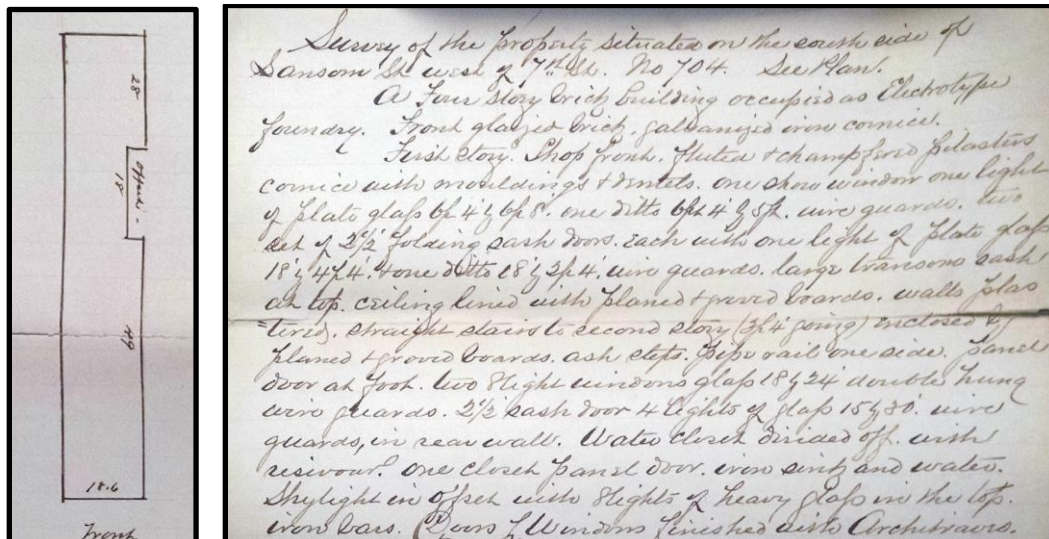 28
offset -
18
49
18.6
Front
Survey of the property situated on the south side of
Sansom St. west of 7th St. No 704. See Plan.
A Four Story brick building occupied as Electrotype
foundry. Front glazed brick. galvanized iron cornice.
First story. Shop front. fluted + champfered pilasters
cornice with mouldings + dentels. one show window one light
of plate glass 6ft 4 by 6ft 8. one ditto 6ft 4 by 5ft. wire guards. two
set of 2½ folding sash doors. each with one light of plate glass
18 by 4ft 4. + one ditto 18 by 3ft 4. wire guards. large transome sash
at top. ceiling lined with planed + groved boards. walls plas
"tered. straight stairs to second story (3ft 4 going) enclosed by
planed + groved boards. ash steps. pipe rail one side. panel
door at foot. two 8 light windows glass 18 by 24 double hung
wire guards. 2½ sash door 4 lights of glass 15 by 30. wire
guards, in rear wall. Water closet divided off. with
resivour. one closet panel door. iron sink and water.
Skylight in offset with 8 lights of heavy glass in the top.
iron bars. Doors & Windows finished with Architraves.